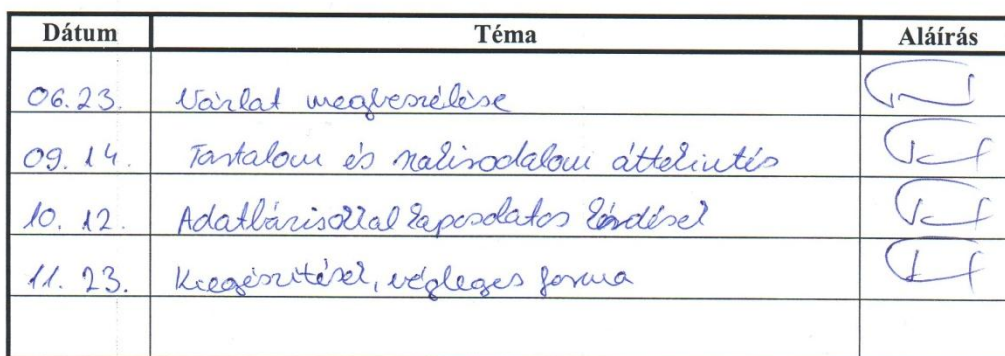 Dátum Téma Aláírás
06.23. Vázlat megbeszélése
09.14. Tartalom és szakirodalom áttekintés
10.12. Adatbázisokkal kapcsolatos kérdések
11.23. Kiegészítések, végleges forma